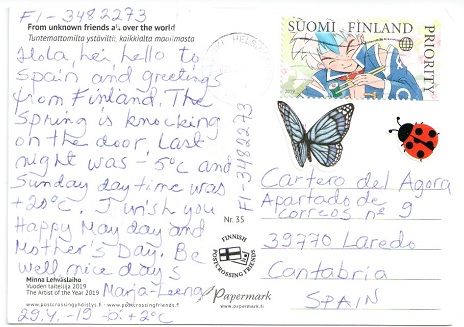 FI-3482273
From unknown friends all over the world
Tuntemattomilta ystäviltä, kaikkialta maailmasta
Hola, hei, hello to
Spain and greetings
from Finland. The
Spring is knocking
on the door. Last
night was -5°C and
Sunday day time was
+20°C. I wish you
Happy May day and
Mother's Day. Be
well, nice days
Marja-Leena
29.4.-19 +2°C
Minna Lehväslaiho
Vuoden taiteilija 2019
The Artist of the Year 2019
www.postcrossingyhdistys.fi - www.postcrossingfriends.fi
SUOMI FINLAND
PRIORITY
FI-3482273
Nr. 35
FINNISH
POSTCROSSING FRIENDS
Papermark
www.papermark.fi
Cartero del Agora
Apartado de
correos nº 9
39770 Laredo
Cantabria
SPAIN